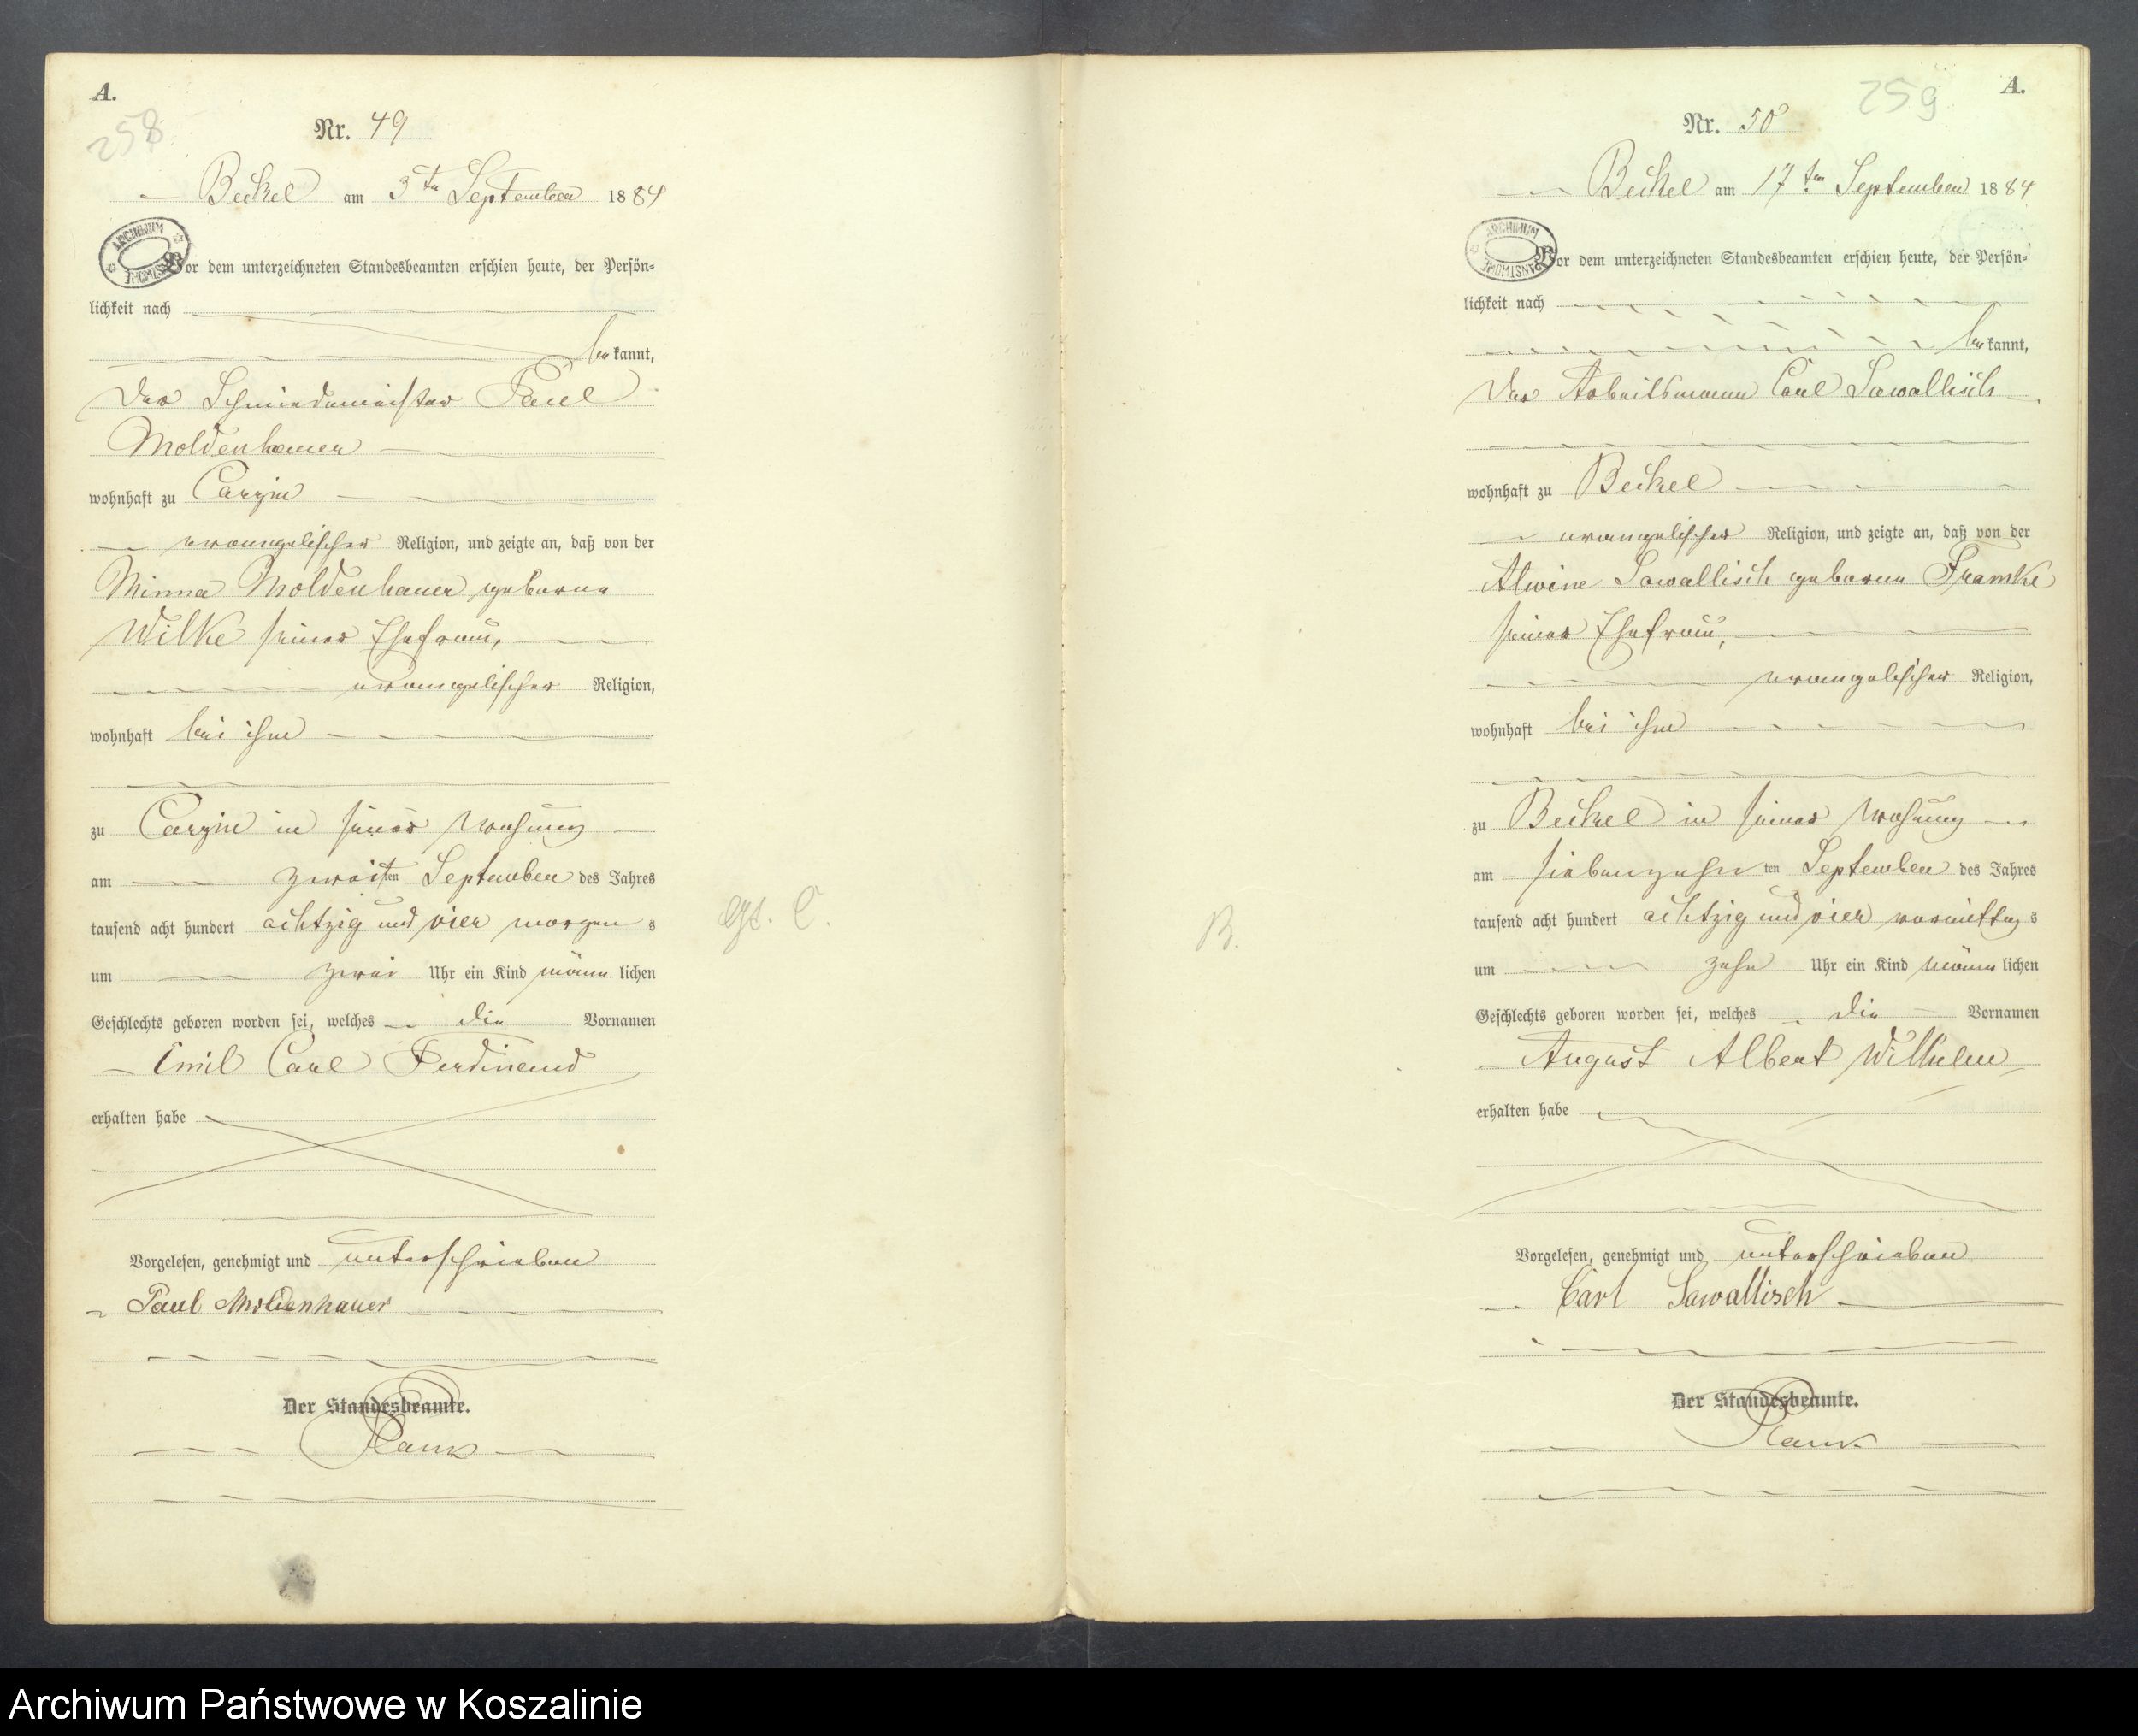 A.
258
Nr. 49
Beckel am 3ten September 1884
ARCHIWUM PAŃSTWOWE
Vor dem unterzeichneten Standesbeamten erschien heute, der Persön=
lichkeit nach
bekannt,
der Schmiedemeister Paul
Moldenhauer
wohnhaft zu Carzin
evangelischer Religion, und zeigte an, daß von der
Minna Moldenhauer geborne
Wilke seiner Ehefrau,
evangelischer Religion,
wohnhaft bei ihm
zu Carzin in seiner Wohnung
am zweiten September des Jahres
tausend acht hundert achtzig und vier morgens
um zwei Uhr ein Kind männlichen
Geschlechts geboren worden sei, welches die Vornamen
Emil Carl Ferdinand
erhalten habe
Vorgelesen, genehmigt und unterschrieben
Paul Moldenhauer
Der Standesbeamte.
C.
A.
259
Nr. 50
Beckel am 17ten September 1884
ARCHIWUM PAŃSTWOWE
Vor dem unterzeichneten Standesbeamten erschien heute, der Persön=
lichkeit nach
bekannt,
der Arbeitsmann Carl Sawallisch
wohnhaft zu Beckel
evangelischer Religion, und zeigte an, daß von der
Alwine Sawallisch geborne Framke
seiner Ehefrau,
evangelischer Religion,
wohnhaft bei ihm
zu Beckel in seiner Wohnung
am siebenzehnten September des Jahres
tausend acht hundert achtzig und vier vormittags
um zehn Uhr ein Kind männlichen
Geschlechts geboren worden sei, welches die Vornamen
August Albert Wilhelm
erhalten habe
Vorgelesen, genehmigt und unterschrieben
Carl Sawallisch
Der Standesbeamte.
B.
Archiwum Państwowe w Koszalinie